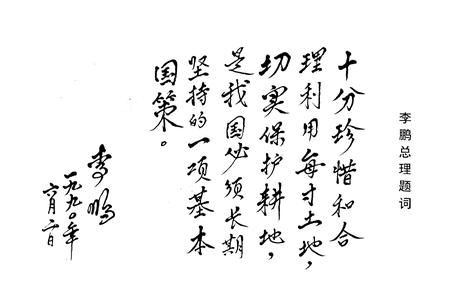 李鹏总理题词
十分珍惜和合
理利用每寸土地，
切实保护耕地，
是我国必须长期
坚持的一项基本
国策。
李鹏
一九九〇年
六月二日